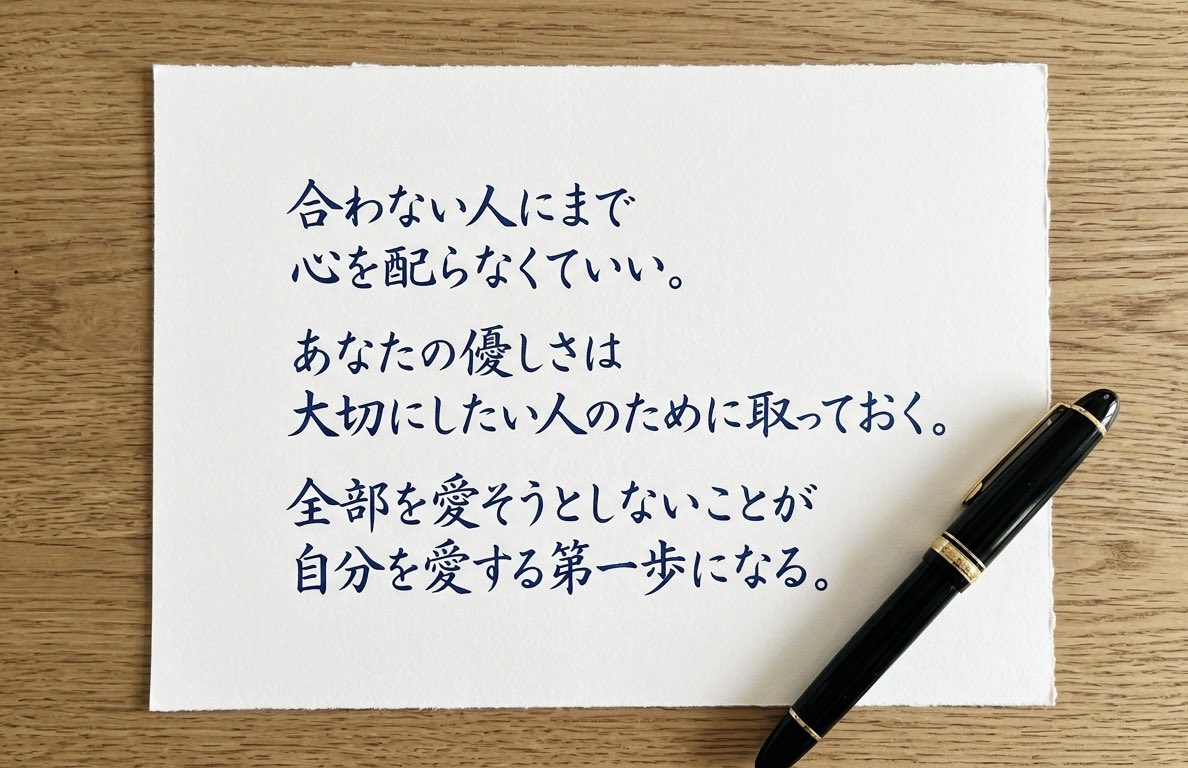 合わない人にまで
心を配らなくていい。
あなたの優しさは
大切にしたい人のために取っておく。
全部を愛そうとしないことが
自分を愛する第一歩になる。